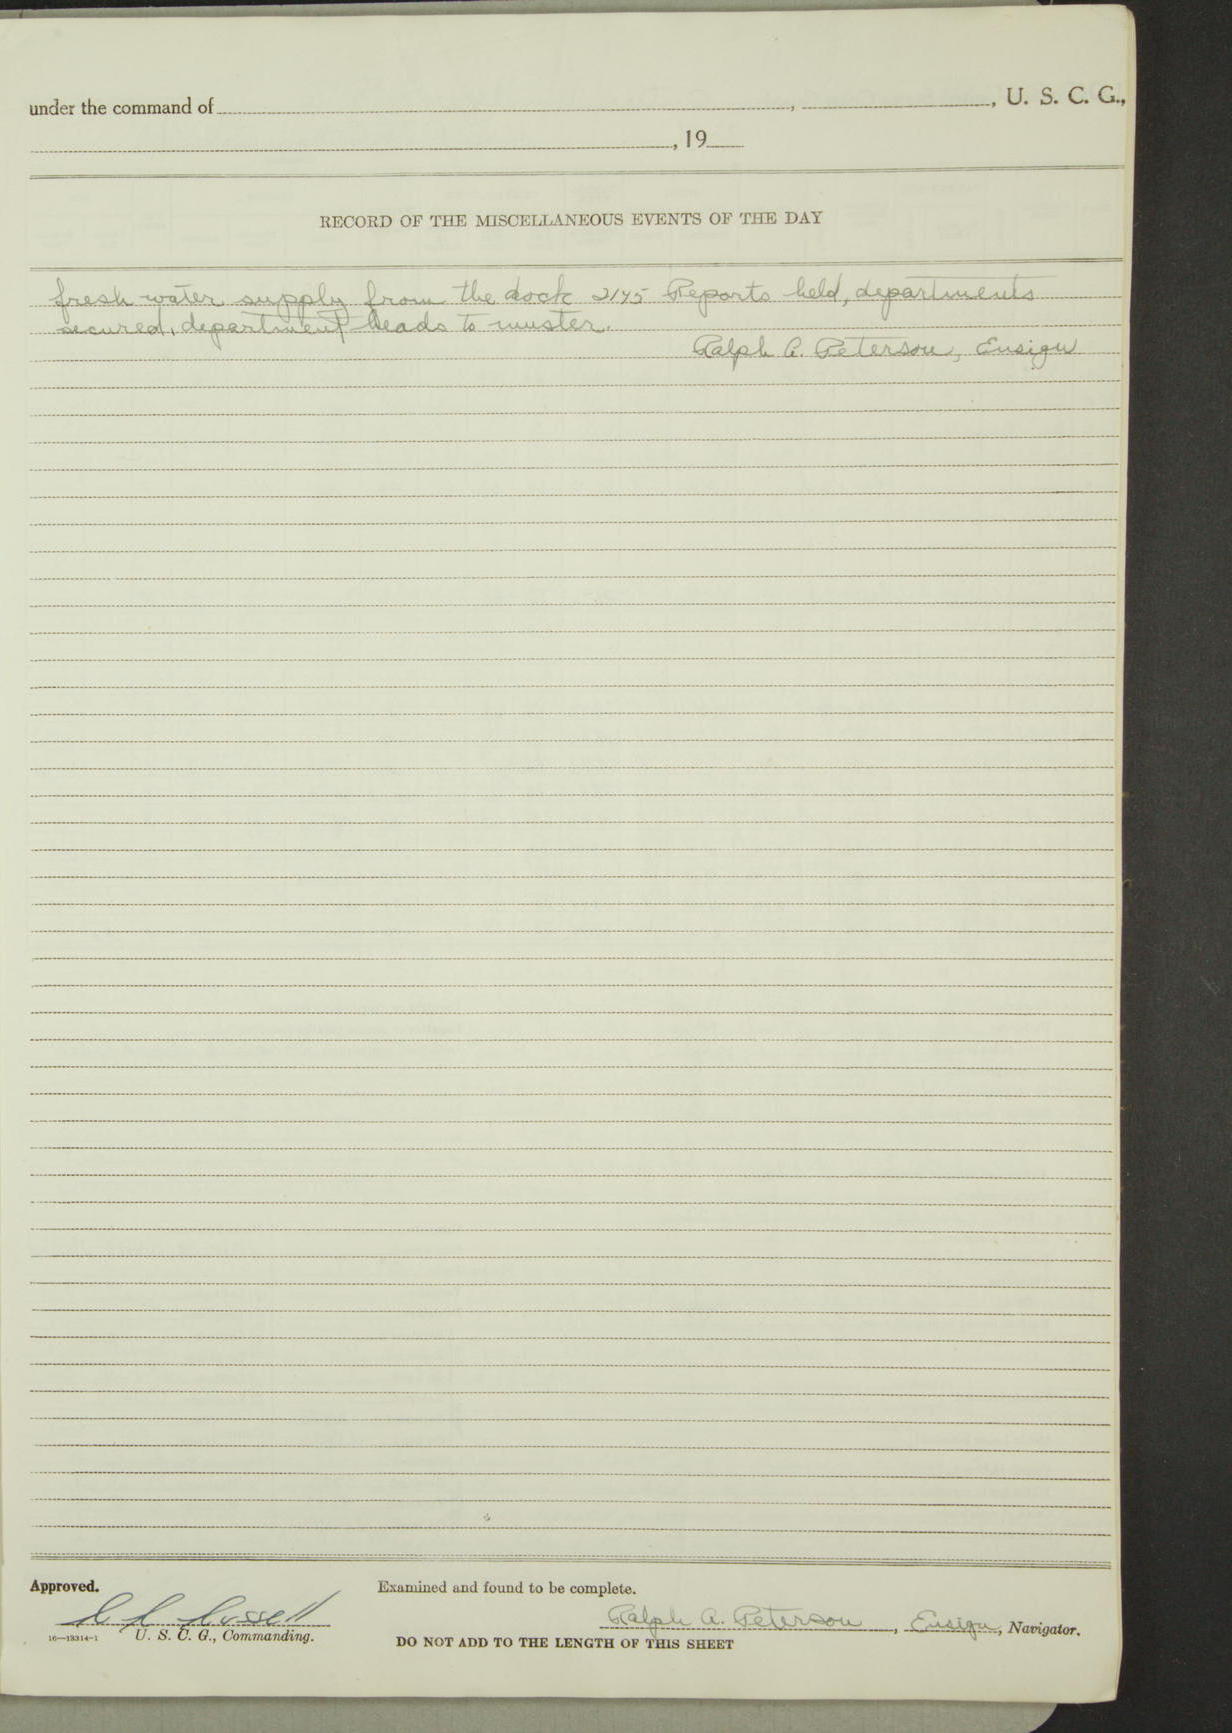 under the command of , , U. S. C. G.,
, 19
RECORD OF THE MISCELLANEOUS EVENTS OF THE DAY
fresh water supply from the dock 2145 Reports held, departments
secured, department heads to muster.
Ralph A. Peterson, Ensign
Approved.
Examined and found to be complete.
Russell
Ralph A. Peterson, Ensign, Navigator.
16—13314-1 U. S. C. G., Commanding.
DO NOT ADD TO THE LENGTH OF THIS SHEET